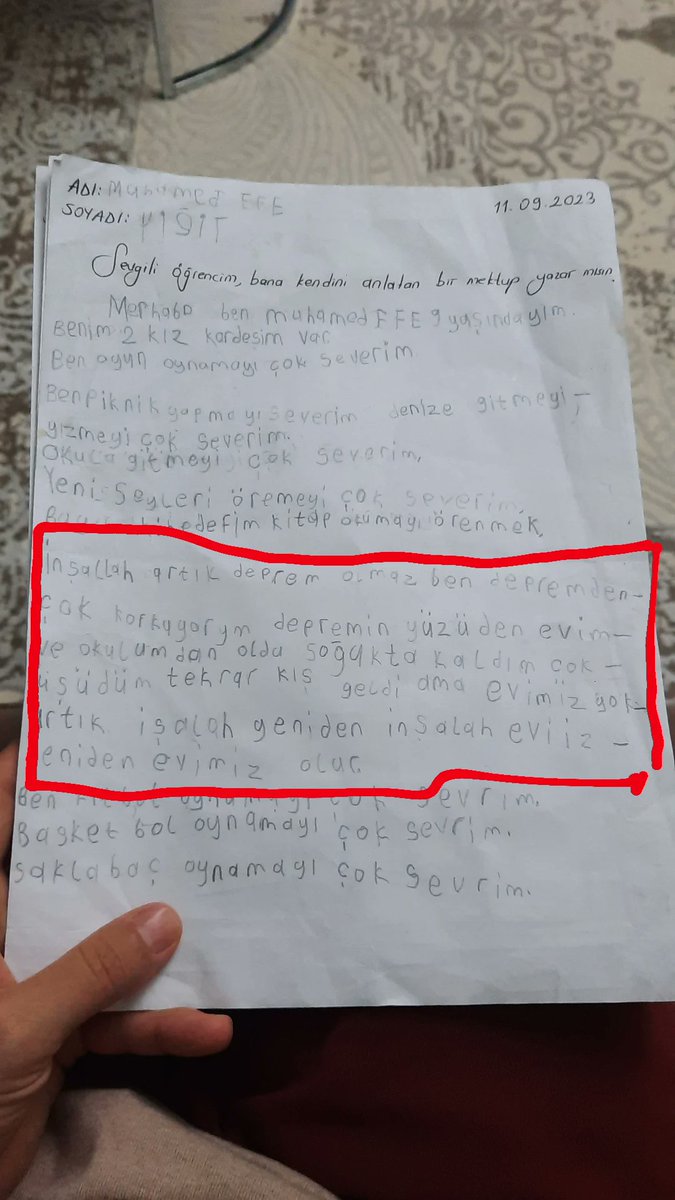 ADI: Muhamed EFE
11.09.2023
SOYADI: YİĞİT
Sevgili öğrencim, bana kendini anlatan bir mektup yazar mısın.
Merhaba ben muhamed EFE 9 yaşındayım.
Benim 2 kız kardeşim var
Ben oyun oynamayı çok severim
Ben piknik yapmayı severim denize gitmeyi,
yizmeyi çok severim.
Okula gitmeyi çok severim,
Yeni şeyleri öremeyi çok severim.
kitap okumayı örenmek,
inşallah artık deprem olmaz ben depremden-
çok korkuyorym depremin yüzüden evim-
ve okulumdan oldu soğukta kaldım çok-
üşüdüm tekrar kış geldi ama evimiz yok-
artık işalah yeniden inşalah eviiz-
eniden evimiz olur.
Ben oynamayı çok sevrim.
Basket bol oynamayı çok sevrim.
saklabaç oynamayı çok sevrim.